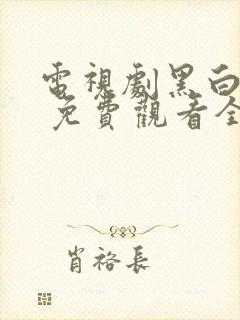 電視劇黑白
免費觀看全
肖裕長